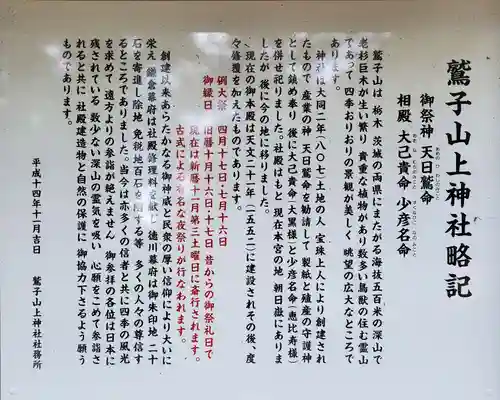 鷲子山上神社略記
御祭神 天日鷲命
相殿 大己貴命 少彦名命
鷲子山は 栃木 茨城の両県にまたがる海抜五百米の深山で
老杉巨木が生い繁り 貴重な植物があり数多い鳥獣の住む霊山
であって 四季おりおりの景観が美しく 眺望の広大なところで
あります。
神社は大同二年(八〇七)土地の人 宝珠上人により創建され
たもので 産業の神 天日鷲命を勧請して 製紙と殖産の守護神
として鎮め奉り 後に大己貴命(大黒様)と少彦名命(恵比寿様)
を併せ祀りました。社殿はもと 現在本宮の地 朝日嶽にありま
したが 後に今の地に移りました。
現在の御本殿は天文二十一年(一五五二)に建設されその後、度
々修復を加えたものであります。
例大祭 四月十七日・十月十六日
御縁日 旧暦十月十六日・十七日 昔からの御祭礼日で
現在は新暦十一月第三土曜日に斎行されます。
古式による有名な夜祭りが行なわれます。
創建以来あらたかなる御神威と民衆の厚い信仰により大いに
栄え 鎌倉幕府は社殿修理料を献じ 徳川幕府は御朱印地 二十
石を寄進し除地 免税地百石を
する等 多くの人々の尊信す
るところでありました。当今は亦多くの信者と共に四季の風光
を求めて 遠方よりの参詣が絶えません 御参拝の各位は日本に
残されている 数少ない深山の霊気を吸い 心願をこめて参詣さ
れると共に 社殿建造物と自然の保護に 御協力下さるよう願う
ものであります。
平成十四年十一月吉日
鷲子山上神社社務所